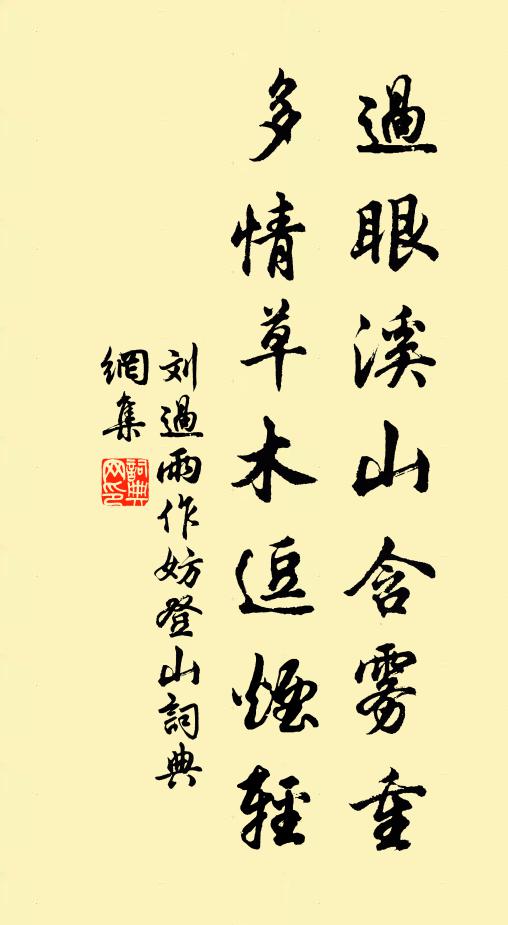 過眼溪山含雾重
多情草木逗煙輕
刘過雨作妨登山詞典
網集
詞典
网印